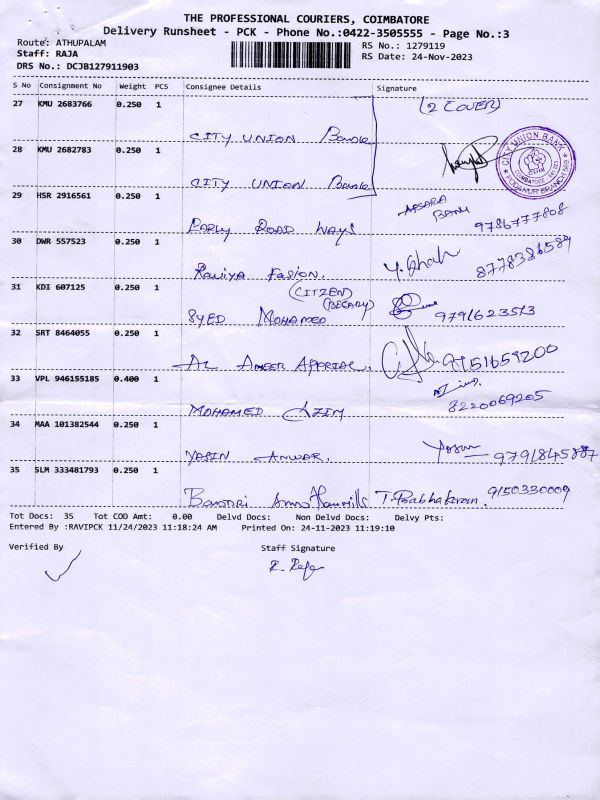 THE PROFESSIONAL COURIERS, COIMBATORE
Delivery Runsheet - PCK - Phone No.:0422-3505555 - Page No.:3
Route: ATHUPALAM
Staff: RAJA
DRS No.: DCJB127911903
RS No.: 1279119
RS Date: 24-Nov-2023
S No Consignment No Weight PCS Consignee Details Signature
27 KMU 2683766 0.250 1
(2 COVER)
CITY UNION Bank
28 KMU 2682783 0.250 1
CITY UNION BANK
CITY UNION Bank
29 HSR 2916561 0.250 1
APSARA
BANU
9786777808
ROAD WAYS
30 DWR 557523 0.250 1
8778326589
Fasion.
31 KDI 607125 0.250 1
(CITZEN)
SYED MOHAMED
9791623513
32 SRT 8464055 0.250 1
AL AMEER
9751659200
33 VPL 946155185 0.400 1
8220069205
MOHAMED AZIM
34 MAA 101382544 0.250 1
YASIN ANWAR.
9791845887
35 SLM 333481793 0.250 1
T. Prabhakaran. 9150330009
Tot Docs: 35 Tot COD Amt: 0.00 Delvd Docs: Non Delvd Docs: Delvy Pts:
Entered By :RAVIPCK 11/24/2023 11:18:24 AM Printed On: 24-11-2023 11:19:10
Verified By
Staff Signature
R. Raja